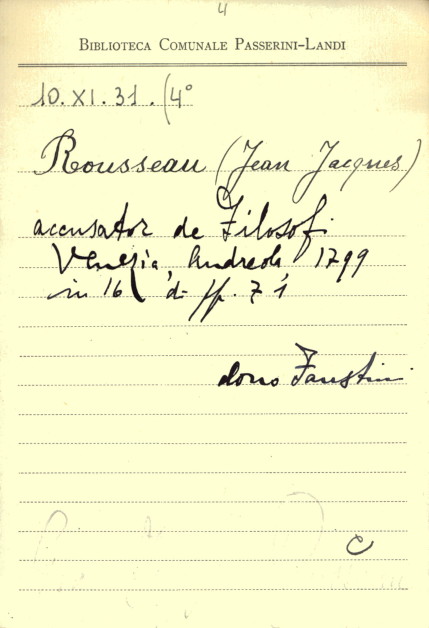 4
BIBLIOTECA COMUNALE PASSERINI-LANDI
10.XI.31.(4°
Rousseau (Jean Jacques)
accusator de Filosofi
Venezia, Andreola 1799
in 16 di pp. 71
dono Faustini
C